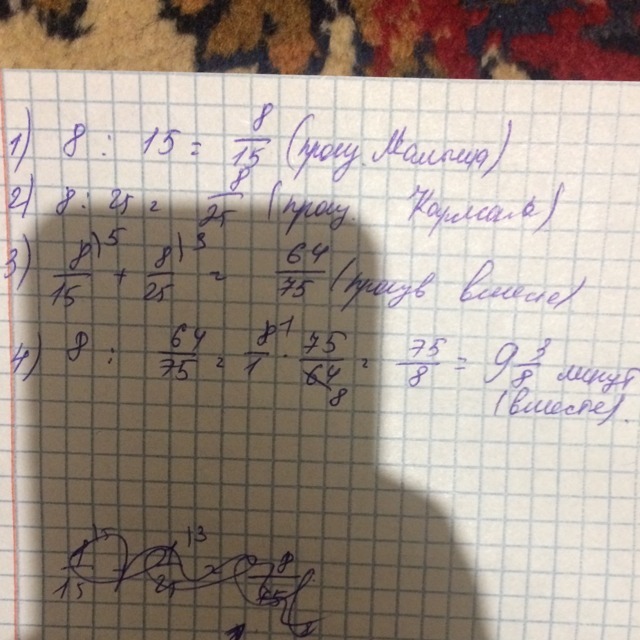 1) 8 : 15 = 8/15 (прозу Малыша)
2) 8 : 25 = 8/25 (прозу. Карлсо)
3) 8/15 \5 + 8/25 \3 = 64/75 (прозув вместе)
4) 8 : 64/75 = 8/1 · 75/64 = 75/8 = 9 3/8 минут
(вместе).